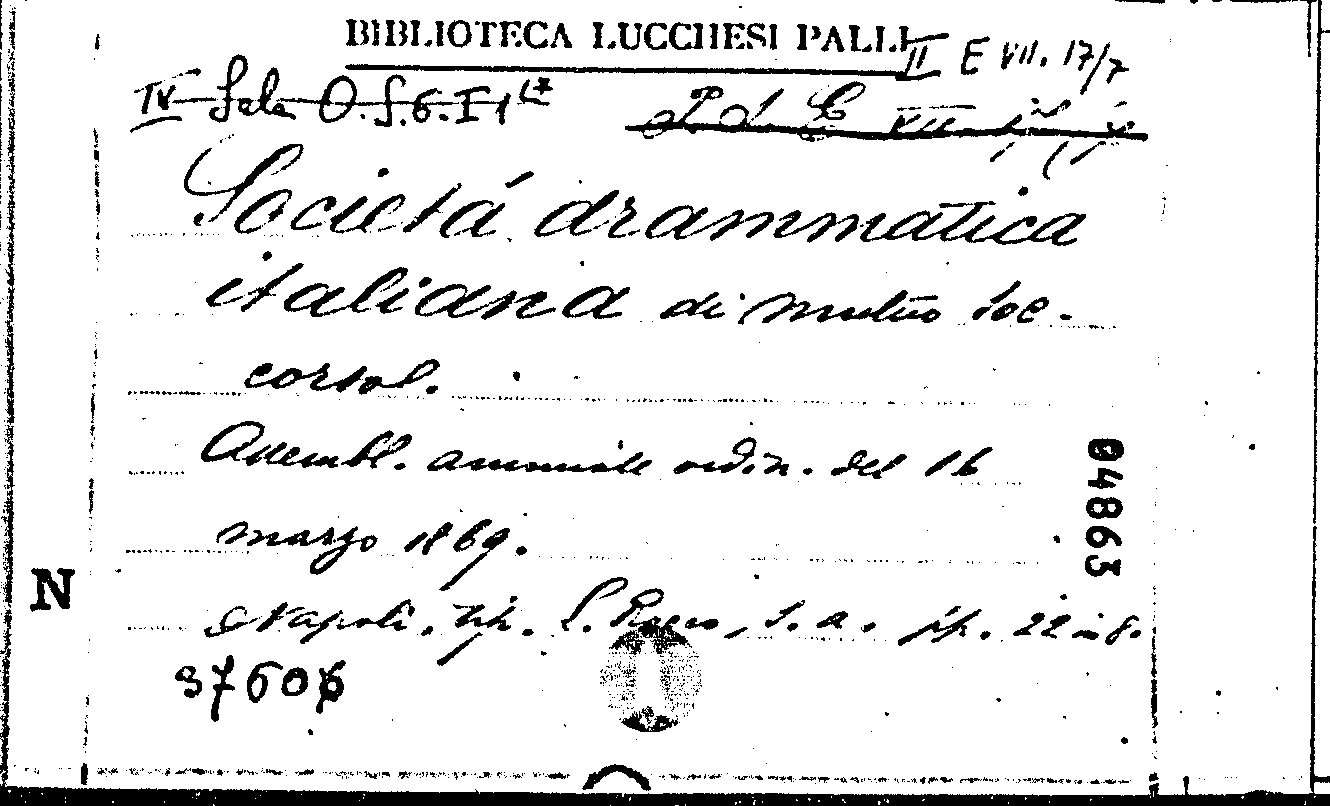 BIBLIOTECA LUCCHESI PALLI
II E VII. 17/7
IV Sala O.S.6.I 1
Societá drammatica
italiana di mutuo soc-
corso.
Assembl. annuale ordin. del 16
marzo 1869.
Napoli, tip. S. Rocco, s. a. pp. 22 in 8.
N
04863
37606